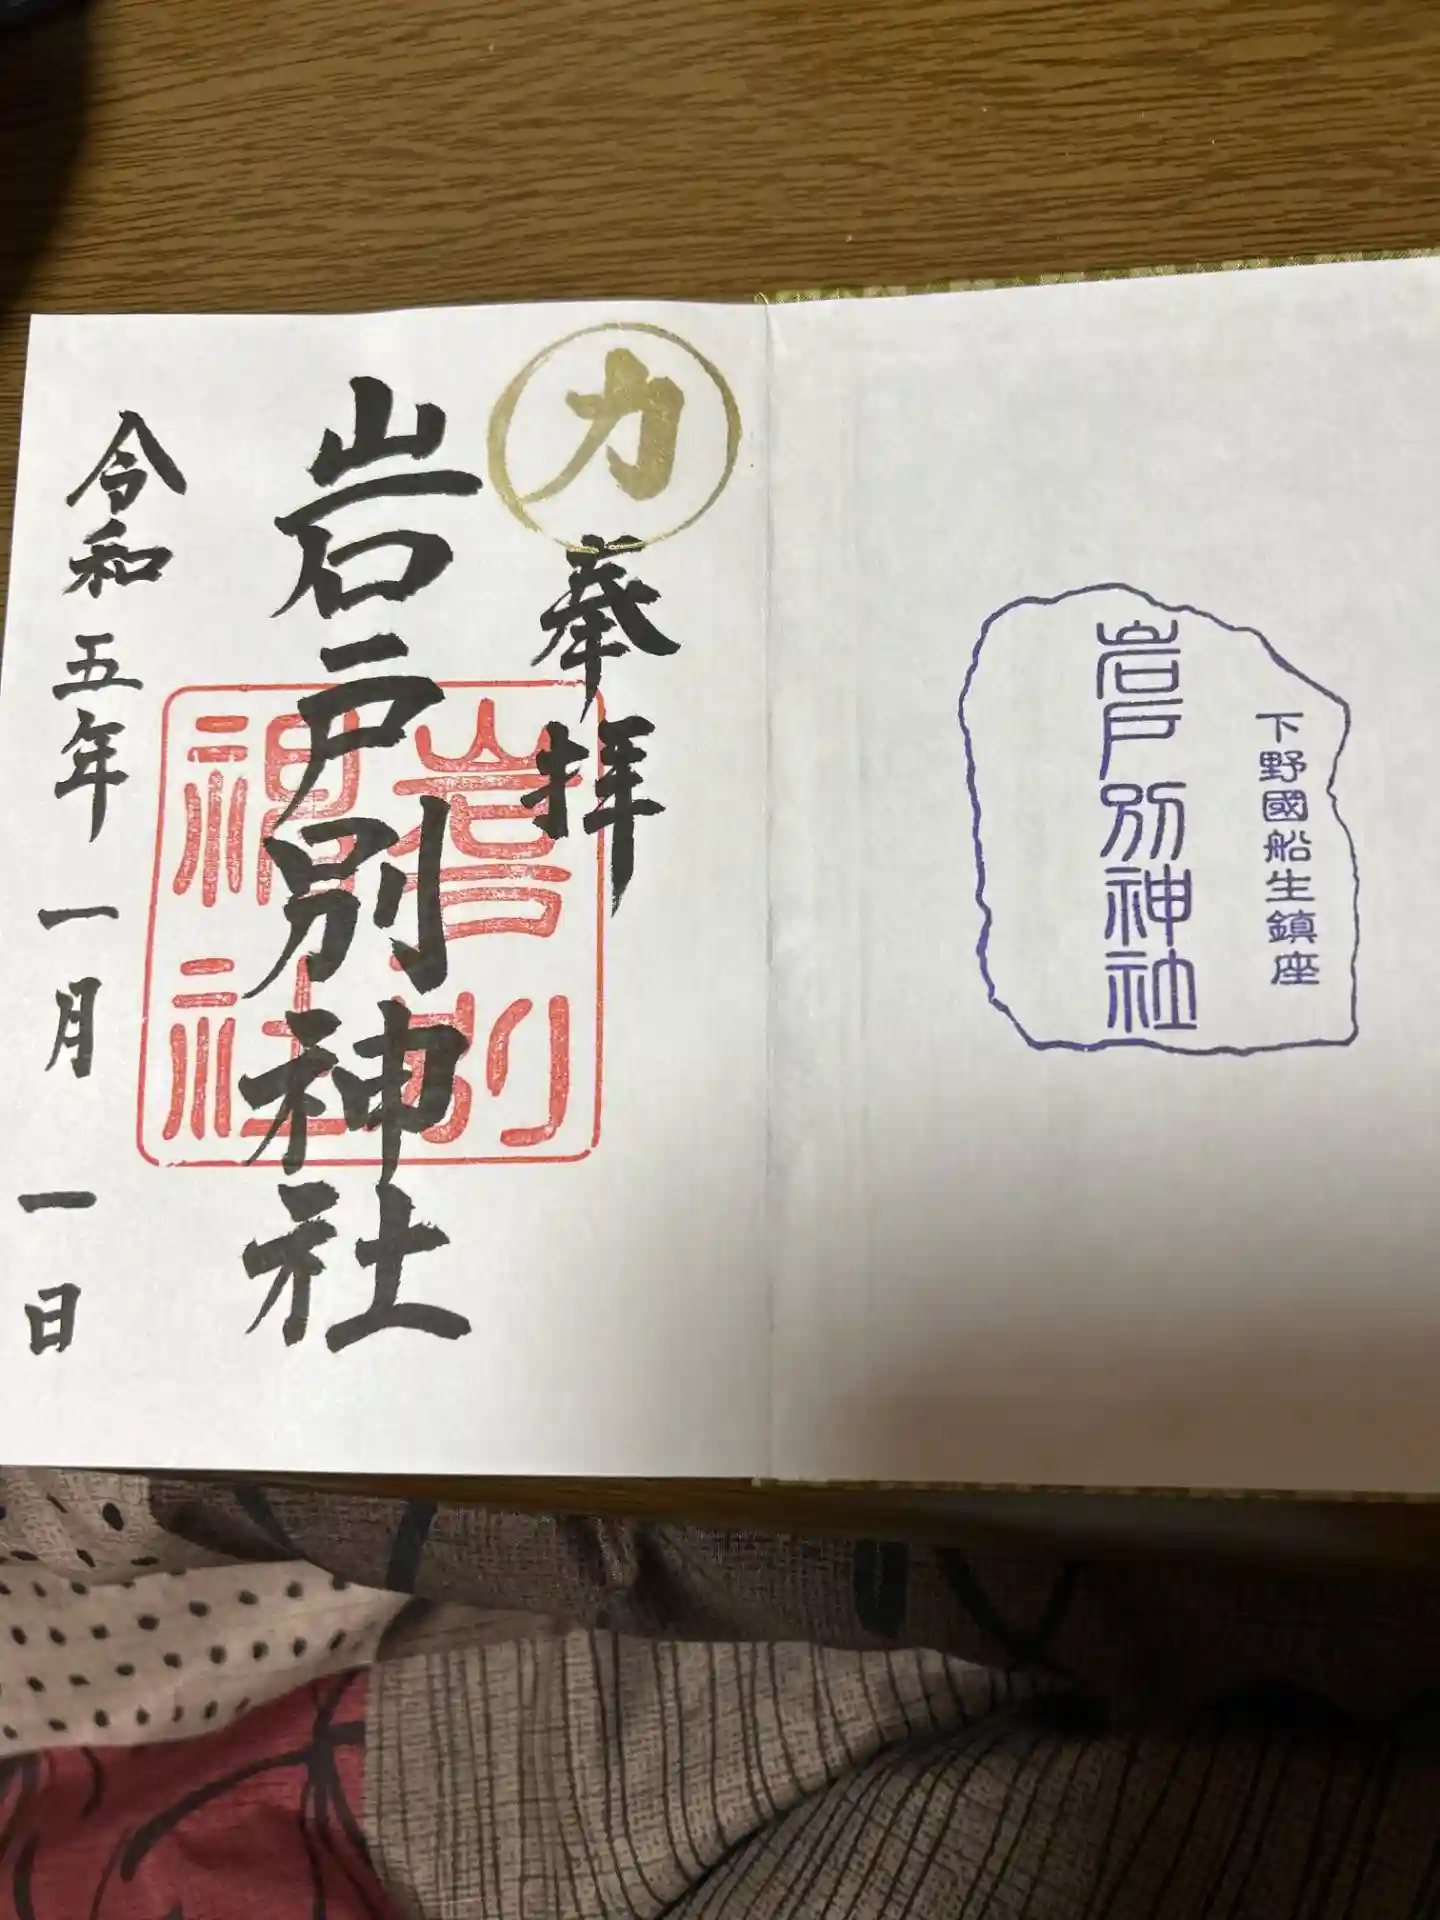 下野國船生鎮座
岩戸別神社
力
奉拝
岩戸別神社
岩戸別神社
令和五年一月一日